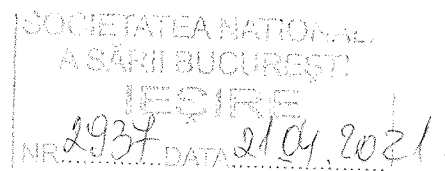 SOCIETATEA NAȚIONAL
A SĂRII BUCUREȘTI
IEȘIRE
NR. 2937 DATA 21 04. 2021